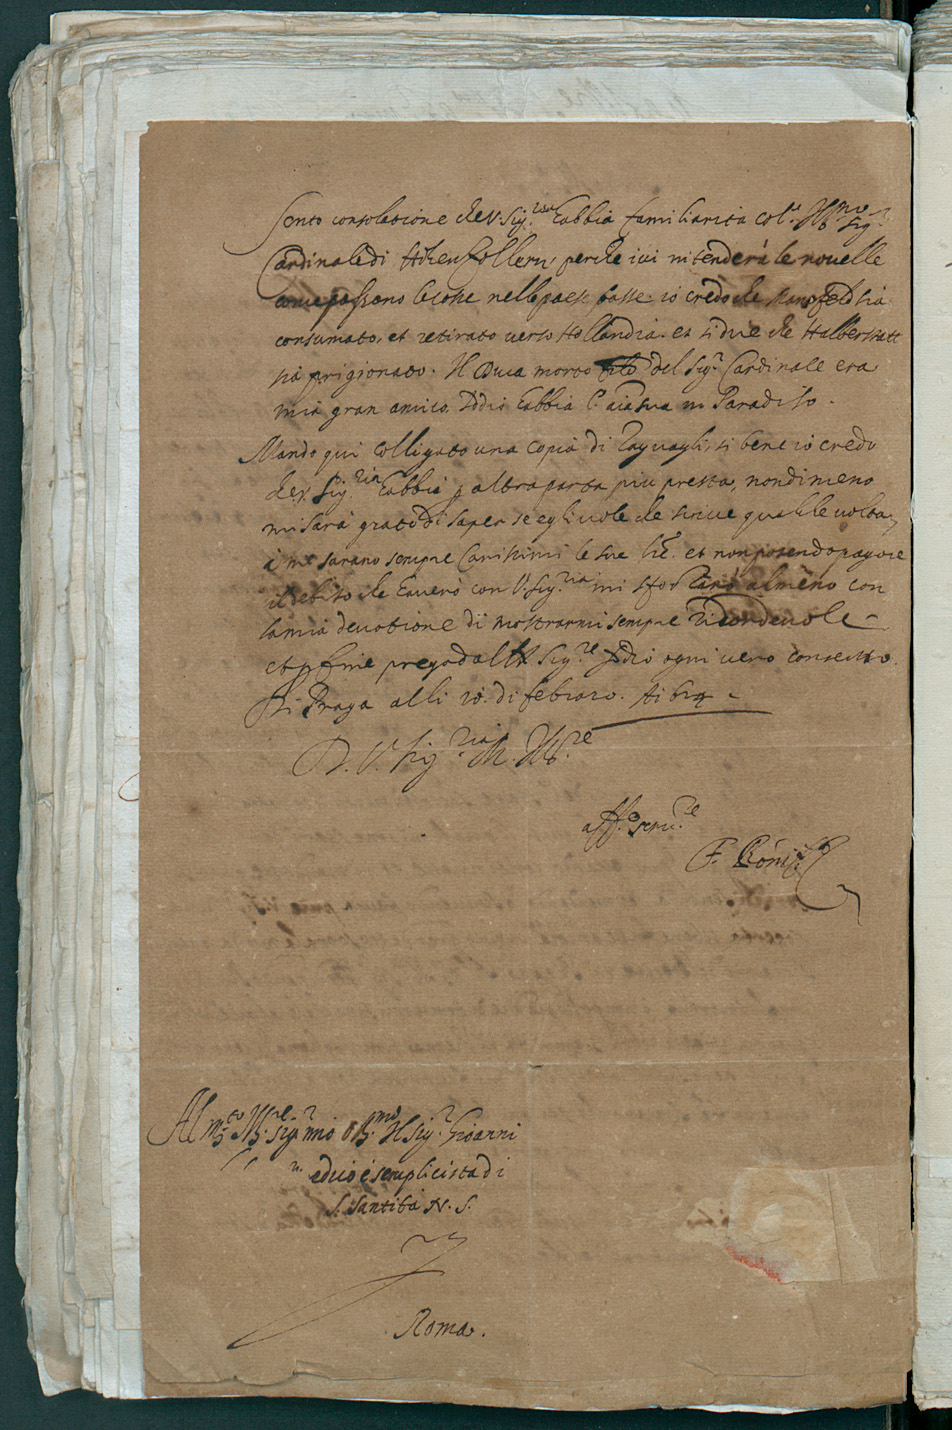 Sento consolatione che V. Sig.ria habbia familiarita col' Ill.mo Sig.r
Cardinale di Hohenzollern, perche ivi intenderà le novelle
come passono le cose nelle paese basse. io credo che Mansfeld sia
consumato, et retirato verso Hollandia. et il duc de Halberstatt
sia prigionato. Il Duca morto del Sig.r Cardinale era
mia gran amico. Iddio habbia l' aīa sua in Paradiso.
Mando qui colligato una copia di si bene io credo
che V. Sig.ria habbia p altra parta piu presta, nondimeno
mi sarà grato di saper se egli vole che scrive qualche volta,
à me sarano sempre carissimi le sue lr̄e. et non potendo pagare
il debito che haverò con V. Sig.ria mi sforzarò almeno con
la mia devotione di mostrarmi sempre ricordevole
et p fine prego dall Sig.re Iddio ogni vero contento.
Di Praga alli 10. di febraro.
D. V. Sig.ria M. Ill.re
aff.o serv.re
F.
Al m.to Ill.re Sig.r mio Il Sig.r Gioanni
medico è semplicista di
S. Santità N. S.
Roma.